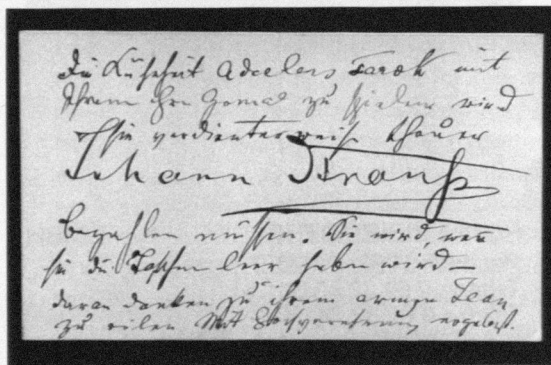 Die Kühnheit Adelens Tarok mit
Ihrem Hrn Gemal zu spielen wird
Sie verdienterweise theuer
Johann Strauss
bezahlen müssen. Sie wird, wenn
sie die Taschen leer haben wird –
daran denken zu ihrem armen Jean
zu eilen Mit Hochverehrung ergebenst.